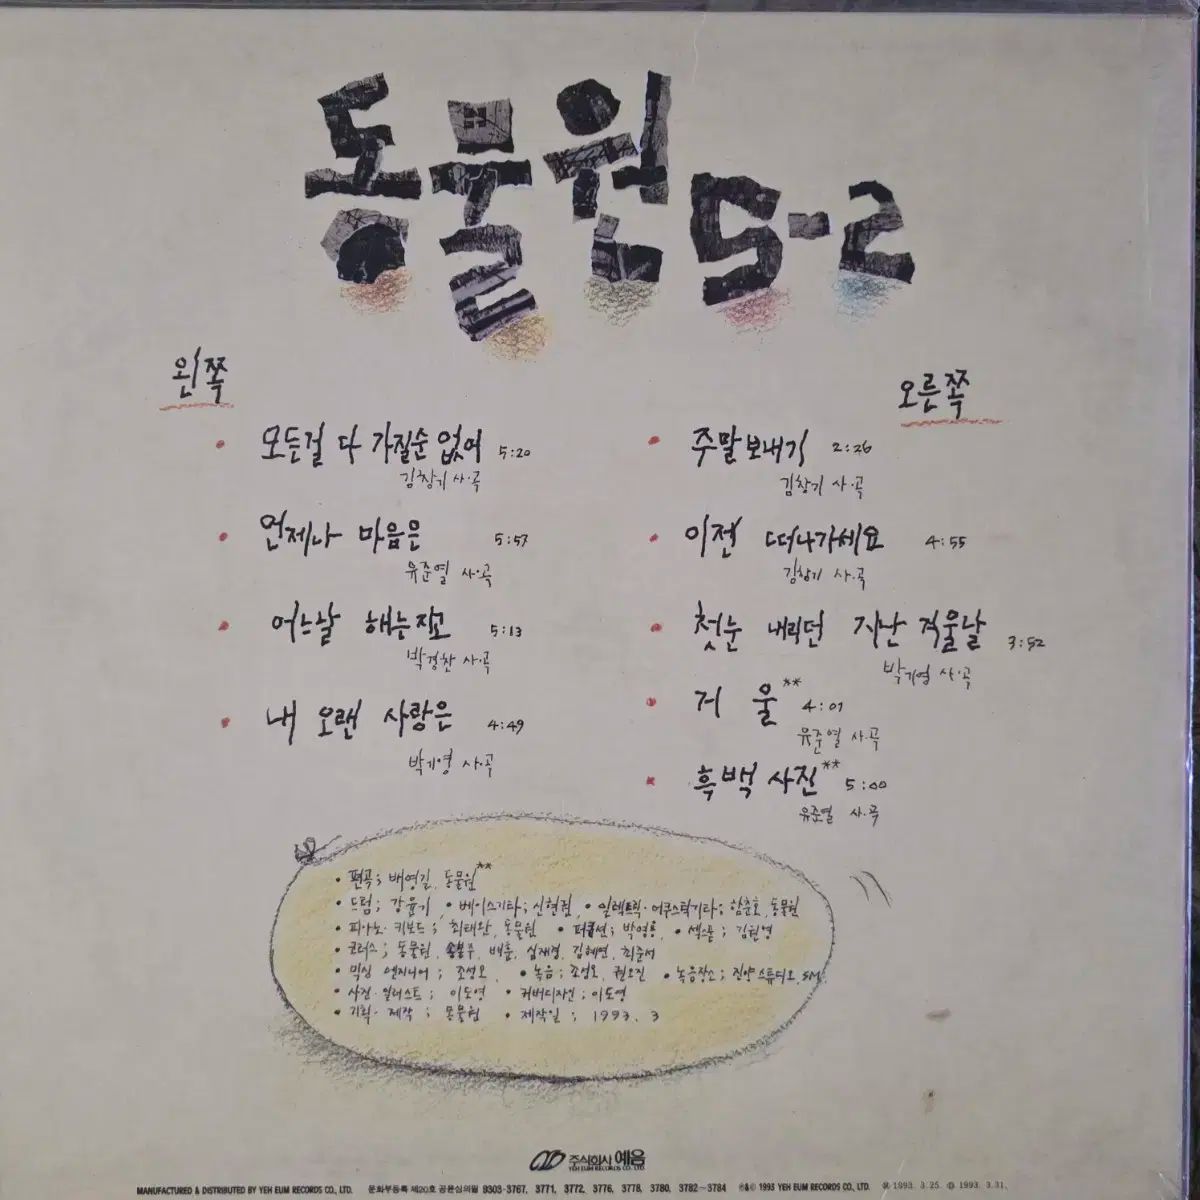 동물원 5-2
왼쪽
모든걸 다 가질순 없어 5:20
김창기 사·곡
언제나 마음은 5:57
유준열 사·곡
어느날 해는지고 5:13
박경찬 사·곡
내 오랜 사랑은 4:49
박기영 사·곡
오른쪽
주말보내기 2:26
김창기 사·곡
이젠 떠나가세요 4:55
김창기 사·곡
첫눈 내리던 지난 겨울날 3:52
박기영 사·곡
거울** 4:01
유준열 사·곡
흑백 사진** 5:00
유준열 사·곡
• 편곡; 배영길, 동물원**
• 드럼; 강윤기, • 베이스기타; 신현권, • 일렉트릭·어쿠스틱기타; 함춘호, 동물원
• 피아노·키보드; 최태완, 동물원 • 퍼커션; 박영용, • 섹스폰; 김원영
• 코러스; 동물원, 배훈, 심재경, 김혜연, 최준서
• 믹싱 엔지니어; 조성오, • 녹음; 조성오, 권오진 • 녹음장소; 진양스튜디오, SM.
• 사진·일러스트; 이도영 • 커버디자인; 이도영
• 기획·제작; 동물원 • 제작일; 1993. 3
주식회사 예음
YEH EUM RECORDS CO., LTD.
MANUFACTURED & DISTRIBUTED BY YEH EUM RECORDS CO., LTD. 문화부등록 제20호 공윤심의필 9303-3767, 3771, 3772, 3776, 3778, 3780, 3782~3784 ℗&© 1993 YEH EUM RECORDS CO., LTD. 1993. 3. 25. 1993. 3. 31.